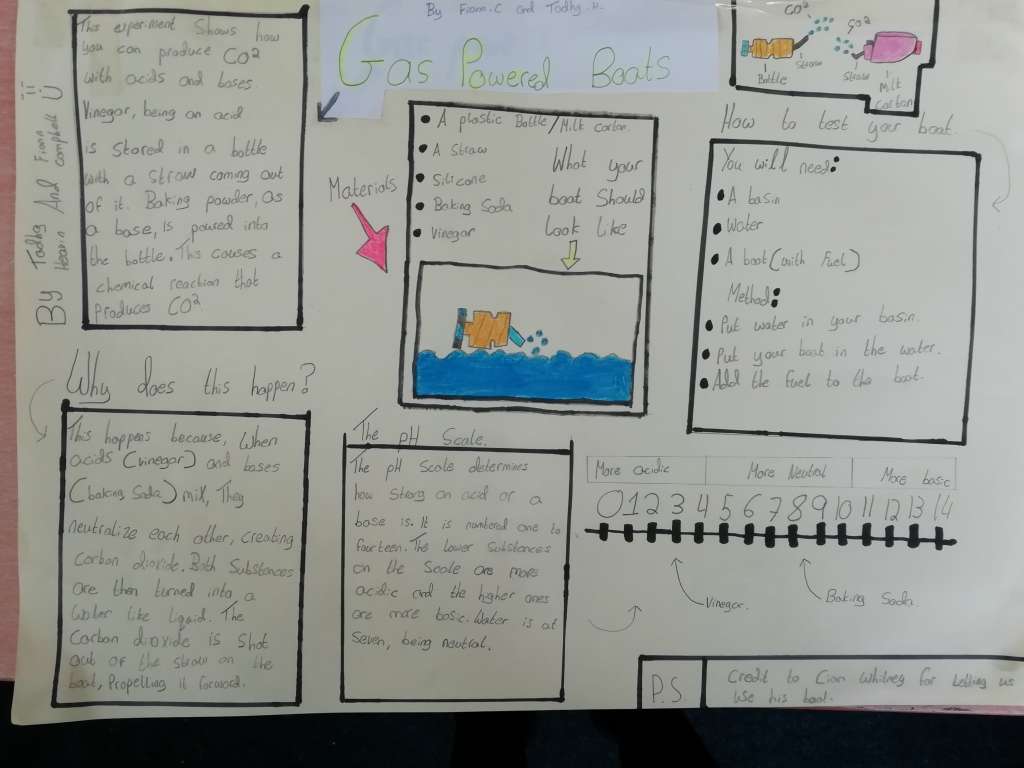 By Fionn.C and Tadhg.H.
Gas Powered Boats
By Tadhg And Fionn
Heavin Campbell
This experiment Shows how
you can produce CO²
with acids and bases.
Vinegar, being an acid
is stored in a bottle
with a straw coming out
of it. Baking powder, as
a base, is poured into
the bottle. This causes a
chemical reaction that
Produces CO²
Why does this happen?
This happens because, when
acids (vinegar) and bases
(baking Soda) mix, They
neutralize each other, creating
Carbon dioxide. Both Substances
are then turned into a
Water like liquid. The
Carbon dioxide is Shot
out of the straw on the
boat, Propelling it forward.
Materials
A plastic Bottle/Milk carton.
A Straw
Silicone
Baking Soda
Vinegar
What your
boat Should
look like
The pH Scale.
The pH Scale determines
how strong an acid or a
base is. It is numbered one to
fourteen. The lower Substances
on the Scale are more
acidic and the higher ones
are more basic. Water is at
Seven, being neutral.
CO²
CO²
Bottle
Straw
Straw
Milk
Carton
How to test your boat
You will need:
A basin
Water
A boat (with Fuel)
Method:
Put water in your basin.
Put your boat in the water.
Add the fuel to the boat.
More acidic More Neutral More basic
0 1 2 3 4 5 6 7 8 9 10 11 12 13 14
Vinegar.
Baking Soda.
P.S.
Credit to Cian Whitney for letting us
use his boat.